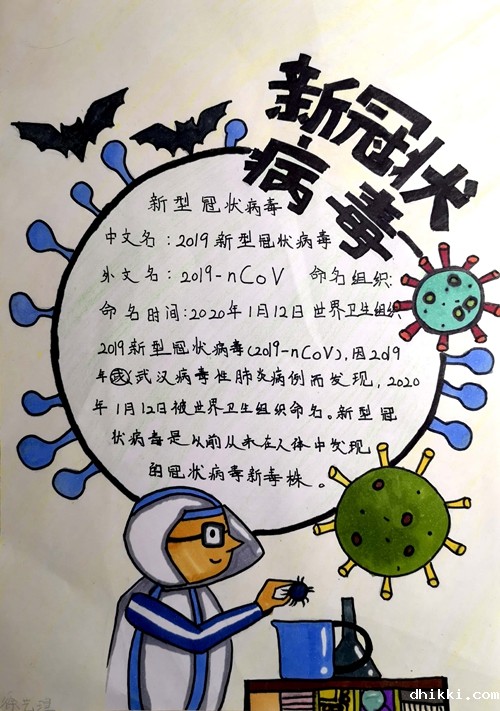 新冠状
病毒
新型冠状病毒
中文名：2019新型冠状病毒
外文名：2019-nCoV 命名组织：
命名时间：2020年1月12日 世界卫生组织
2019新型冠状病毒(2019-nCoV)，因2019
年武汉病毒性肺炎病例而发现，2020
年1月12日被世界卫生组织命名。新型冠
状病毒是以前从未在人体中发现
的冠状病毒新毒株。
dhikki.com